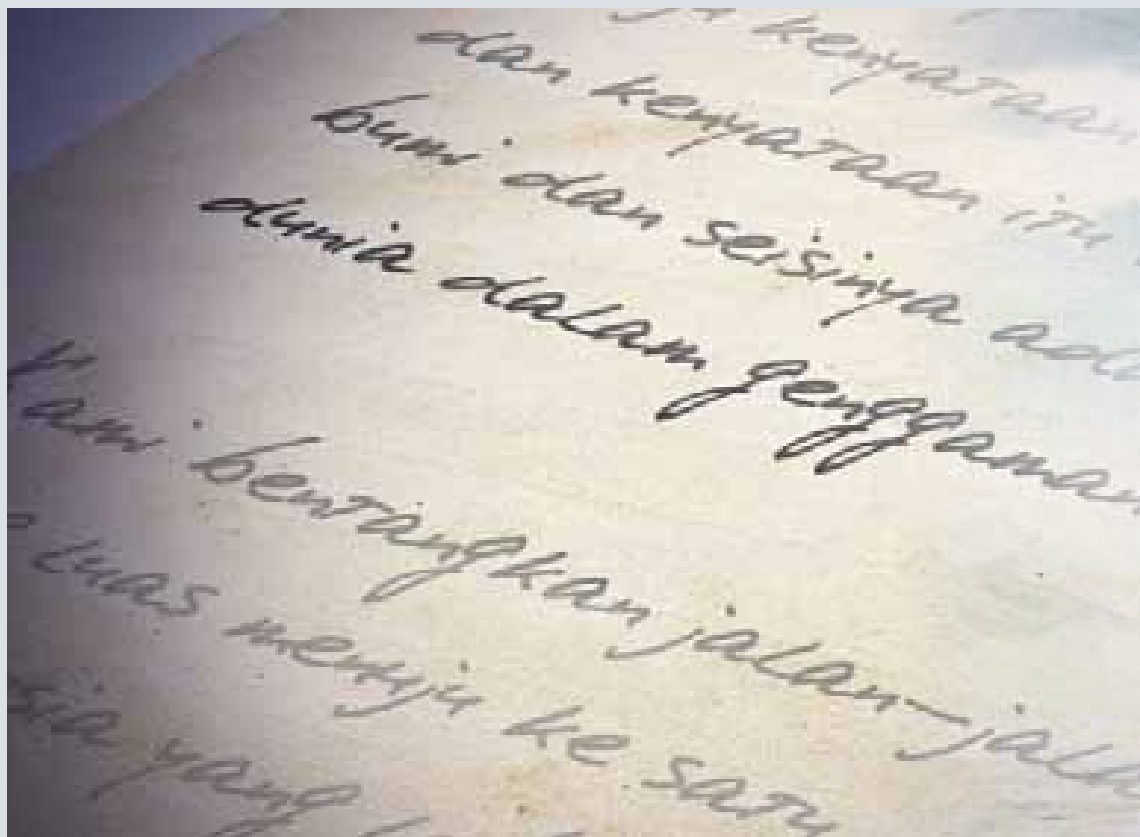 kenyataan
dan kenyataan itu
bumi dan seisinya
dunia dalam genggaman
kami bentangkan jalan-
luas menuju ke satu
yang